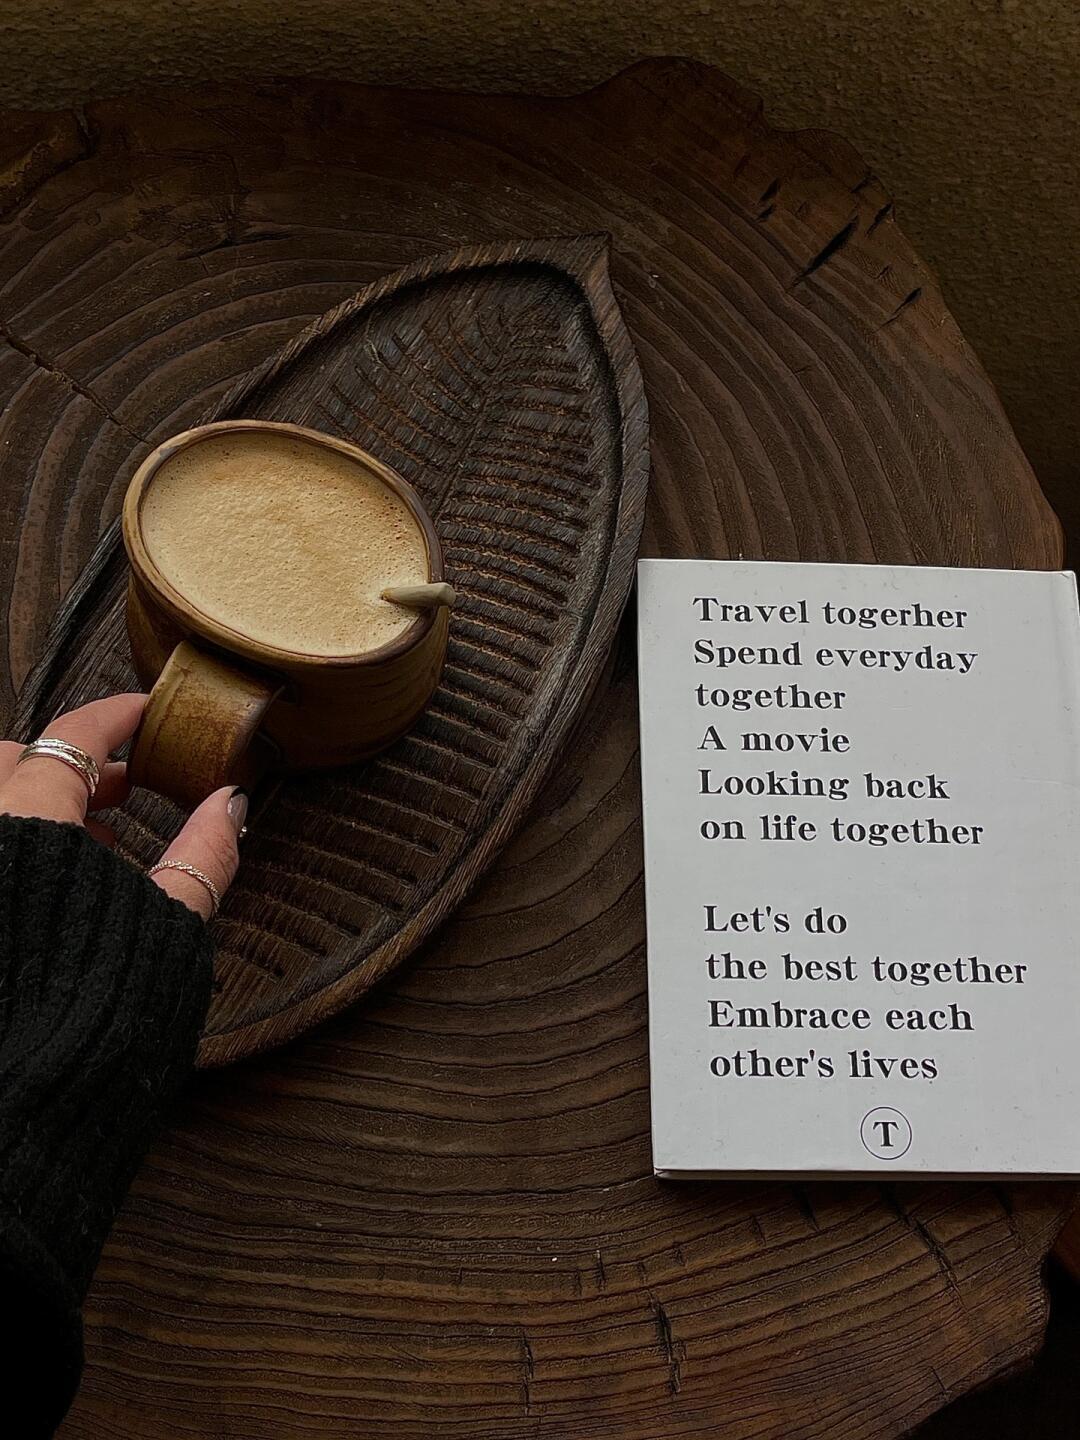 Travel togerher
Spend everyday
together
A movie
Looking back
on life together
Let's do
the best together
Embrace each
other's lives
T